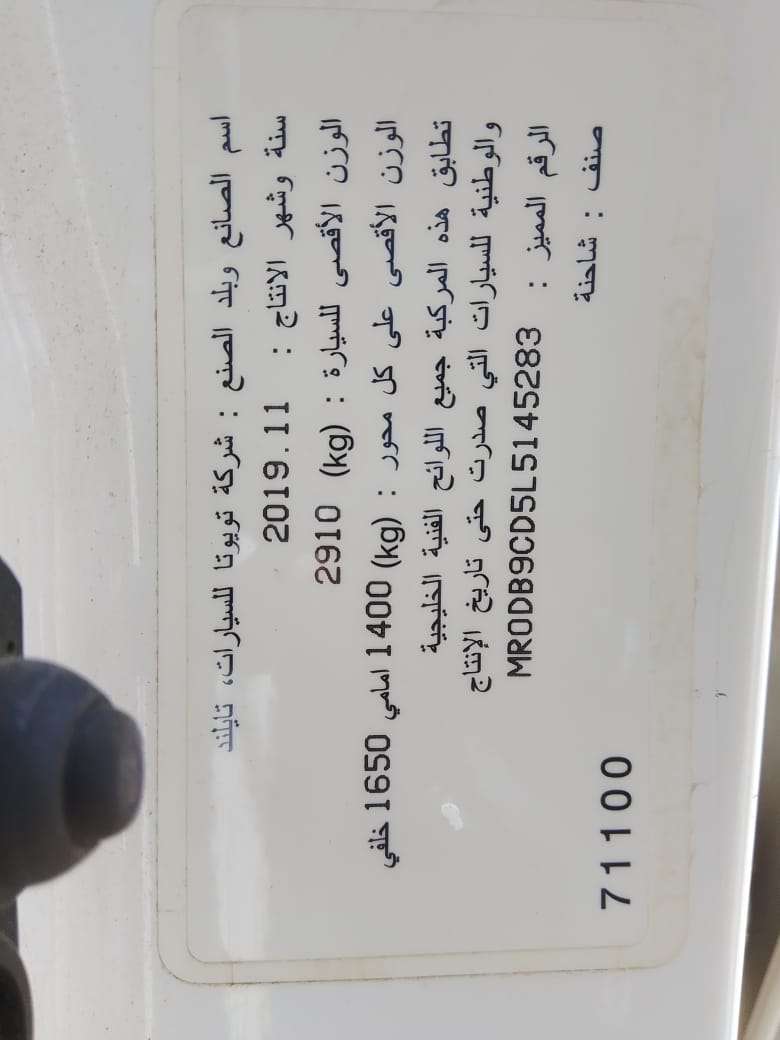 اسم الصانع وبلد الصنع : شركة تويوتا للسيارات، تايلند
سنة وشهر الانتاج : 2019.11
الوزن الأقصى للسيارة : (kg) 2910
الوزن الأقصى على كل محور : (kg) 1400 امامي 1650 خلفي
تطابق هذه المركبة جميع اللوائح الفنية الخليجية
والوطنية للسيارات التي صدرت حتى تاريخ الإنتاج
الرقم المميز : MR0DB9CD5L5145283
صنف : شاحنة
71100